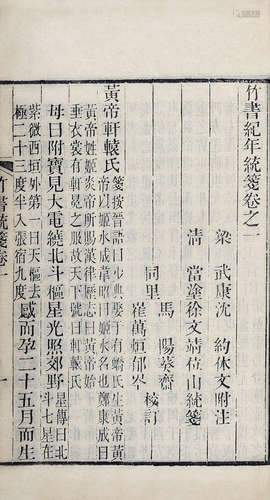 竹書紀年統箋卷之一
梁 武康沈 約休文附注
清 當塗徐文靖位山統箋
馬 陽葵齋
崔萬烜郁岑 校訂
同里
黃帝軒轅氏
箋按晉語曰少典娶于有蟜氏生黃帝黃
帝以姬水成韋昭曰姬水名也鄭康成曰
黃帝姓姬炎帝所賜漢律歷志曰黃帝始
垂衣裳有軒冕之服故天下號曰軒轅氏
母曰附寶見大電繞北斗樞星光照郊野
星傳曰北
斗七星在
紫微西垣外第一曰天樞去
極二十三度半入張宿九度
感而孕二十五月而生
竹書統箋卷一
一